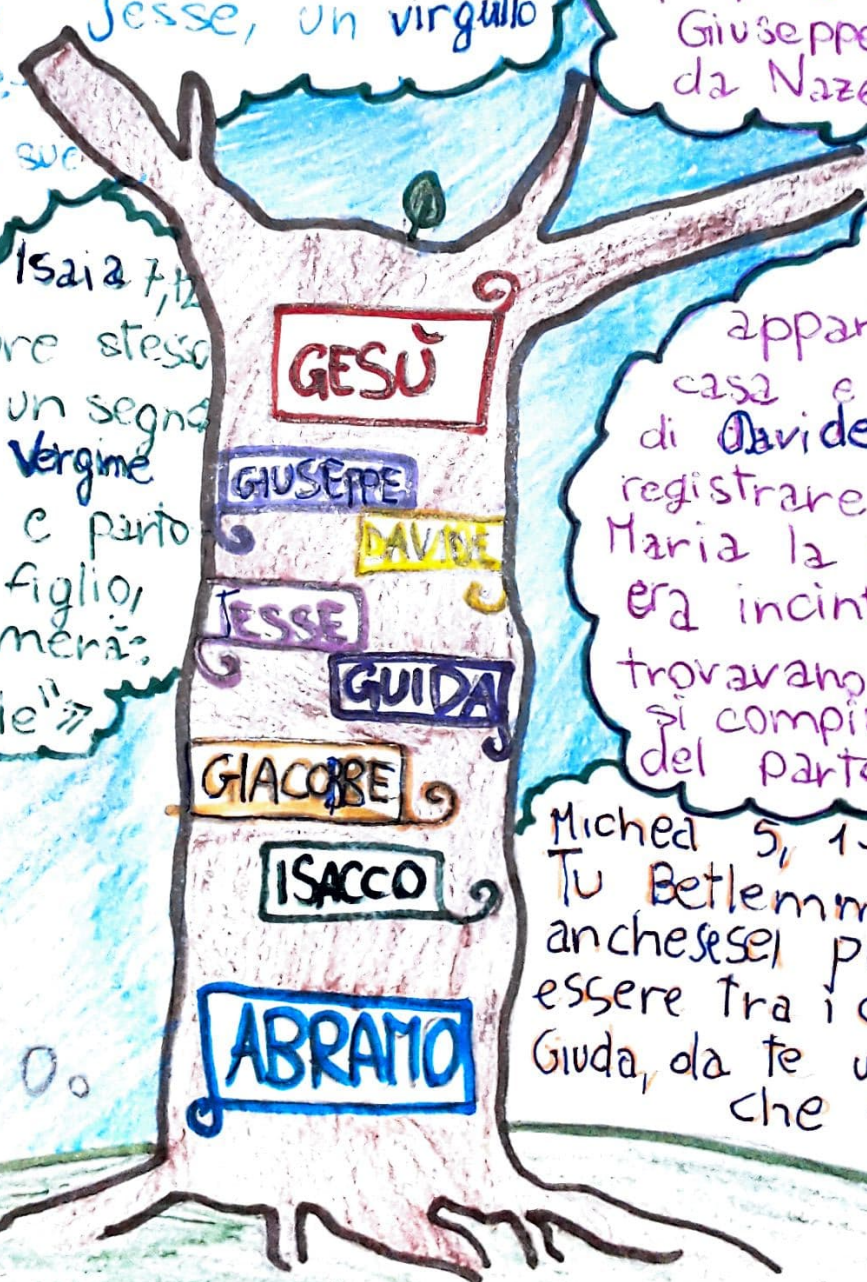 Jesse, un virgulto
suo
Isaia 7,12
re stesso
un segno
Vergine
e parto
figlio,
merà:
le"»
Giuseppe
da Naz
GESÙ
GIUSEPPE
DAVIDE
JESSE
GUIDA
GIACOBBE
ISACCO
ABRAMO
appar
casa e
di Davide
registrare
Maria la
era incint
trovavano
si compi
del parto
Michea 5, 1
Tu Betlemm
anchesesei p
essere tra i
Giuda, da te u
che